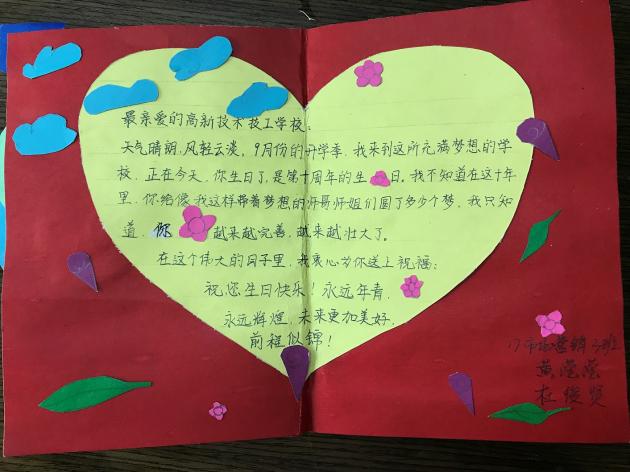 最亲爱的高新技术技工学校：
天气晴朗，风轻云淡，9月份的开学季，我来到这所充满梦想的学
校，正在今天，你生日了，是第十周年的生日。我不知道在这十年
里，你给像我这样带着梦想的师哥师姐们圆了多少个梦，我只知
道，你越来越完善，越来越壮大了。
在这个伟大的日子里，我衷心为你送上祝福：
祝您生日快乐！永远年青，
永远辉煌，未来更加美好，
前程似锦！
17市场营销3班
黄滢滢
杜俊贤